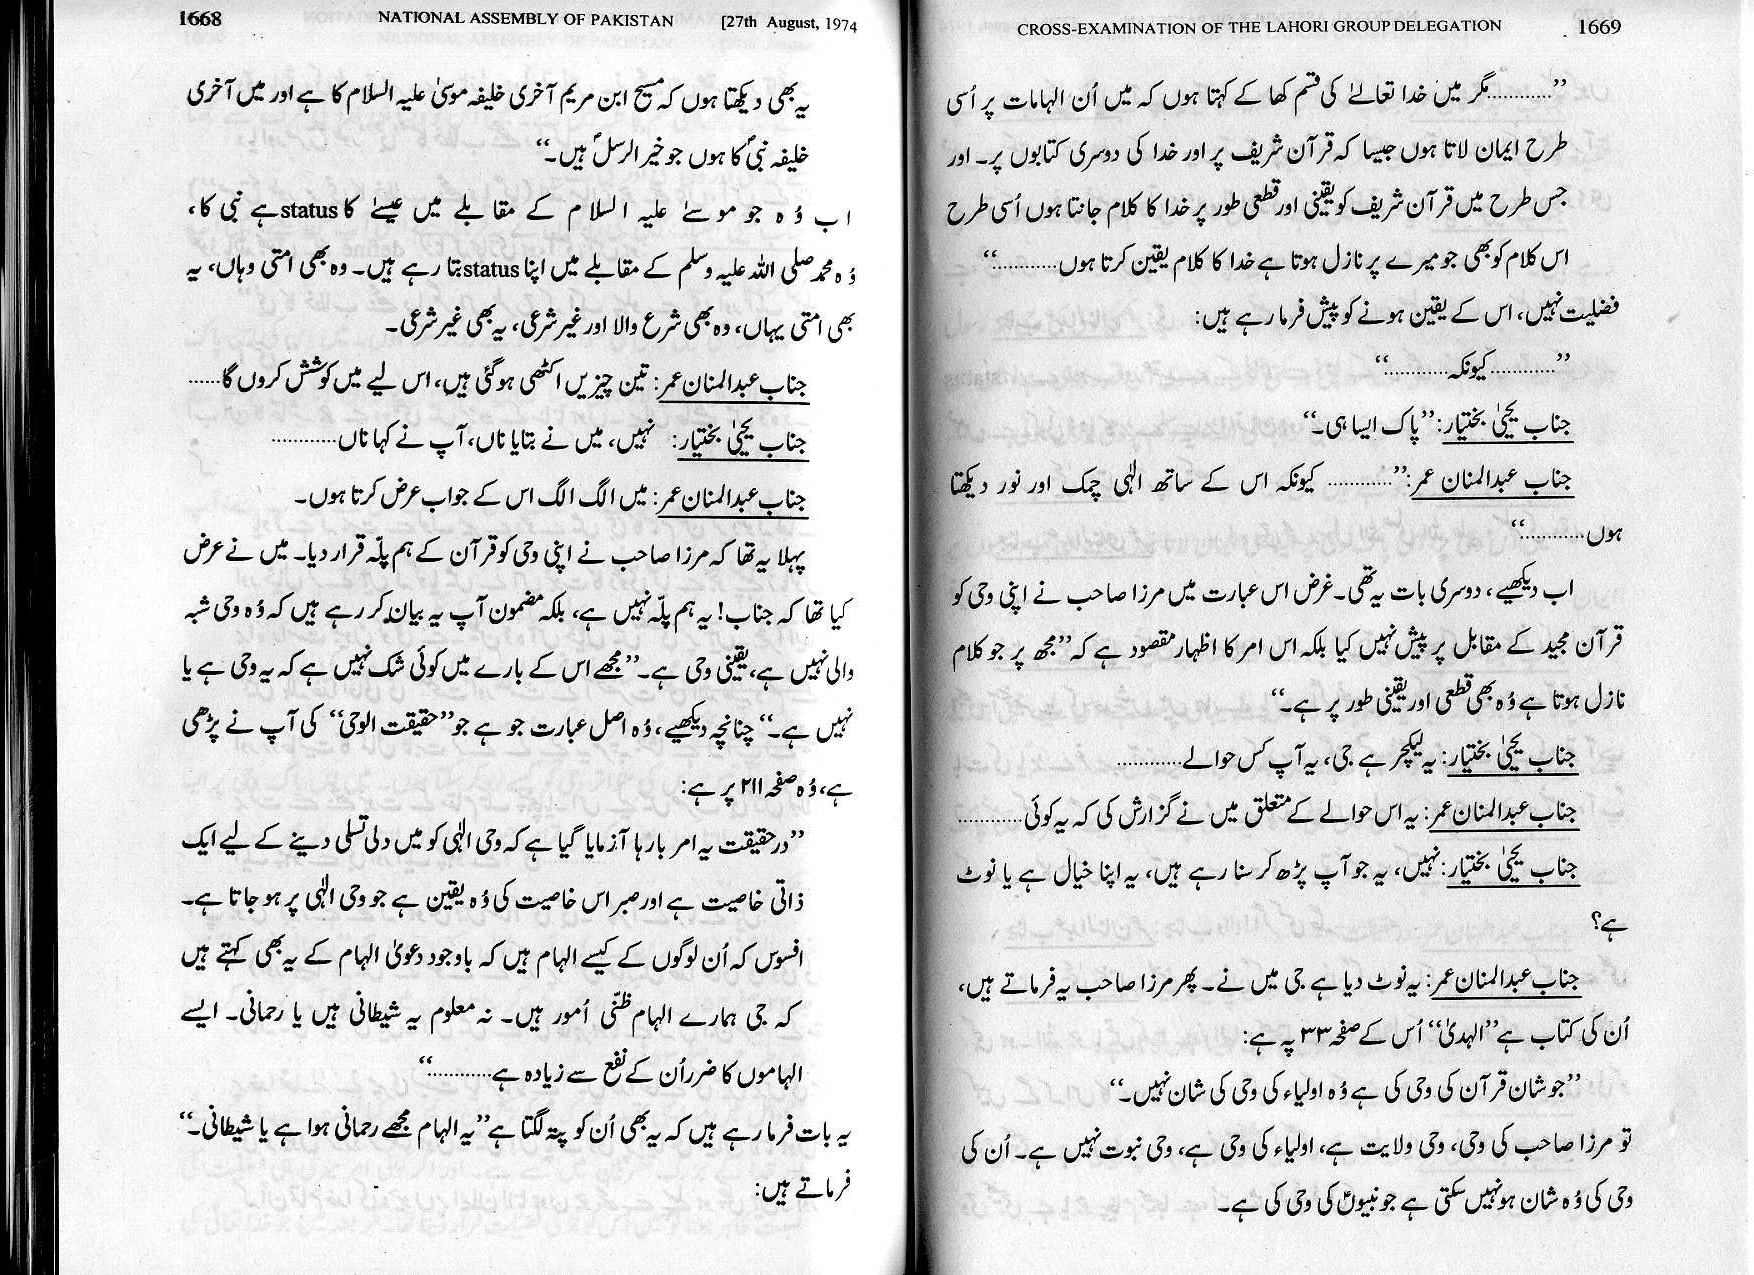 1668 NATIONAL ASSEMBLY OF PAKISTAN [27th August, 1974
یہ بھی دیکھتا ہوں کہ مسیح ابن مریم آخری خلیفہ موسیٰ علیہ السلام کا ہے اور میں آخری
خلیفہ نبیؐ کا ہوں جو خیر الرسلؐ ہیں۔‘‘
اب وُہ جو موسےٰ علیہ السلام کے مقابلے میں عیسےٰ کا status ہے نبی کا،
وُہ محمد صلی اللہ علیہ وسلم کے مقابلے میں اپنا status بتا رہے ہیں۔ وہ بھی امتی وہاں، یہ
بھی امتی یہاں، وہ بھی شرع والا اور غیر شرعی، یہ بھی غیر شرعی۔
جناب عبدالمنان عمر: تین چیزیں اکٹھی ہوگئی ہیں، اس لیے میں کوشش کروں گا......
جناب یحییٰ بختیار: نہیں، میں نے بتایا ناں، آپ نے کہا ناں............
جناب عبدالمنان عمر: میں الگ الگ اس کے جواب عرض کرتا ہوں۔
پہلا یہ تھا کہ مرزا صاحب نے اپنی وحی کو قرآن کے ہم پلّہ قرار دیا۔ میں نے عرض
کیا تھا کہ جناب! یہ ہم پلّہ نہیں ہے، بلکہ مضمون آپ یہ بیان کر رہے ہیں کہ وُہ وحی شبہ
والی نہیں ہے، یقینی وحی ہے۔ ’’مجھے اس کے بارے میں کوئی شک نہیں ہے کہ یہ وحی ہے یا
نہیں ہے۔‘‘ چنانچہ دیکھیے، وُہ اصل عبارت جو ہے جو ’’حقیقت الوحی‘‘ کی آپ نے پڑھی
ہے، وُہ صفحہ ۲۱۱ پر ہے:
’’درحقیقت یہ امر بارہا آزمایا گیا ہے کہ وحی الٰہی کو میں دلی تسلی دینے کے لیے ایک
ذاتی خاصیت ہے اور صبر اس خاصیت کی وُہ یقین ہے جو وحی الٰہی پر ہو جاتا ہے۔
افسوس کہ اُن لوگوں کے کیسے الہام ہیں کہ باوجود دعویٰ الہام کے یہ بھی کہتے ہیں
کہ جی ہمارے الہام ظنّی اُمور ہیں۔ نہ معلوم یہ شیطانی ہیں یا رحمانی۔ ایسے
الہاموں کا ضرر اُن کے نفع سے زیادہ ہے............‘‘
یہ بات فرما رہے ہیں کہ یہ بھی اُن کو پتہ لگتا ہے ’’یہ الہام مجھے رحمانی ہوا ہے یا شیطانی۔‘‘
فرماتے ہیں:
CROSS-EXAMINATION OF THE LAHORI GROUP DELEGATION 1669
’’............مگر میں خدا تعالےٰ کی قسم کھا کے کہتا ہوں کہ میں اُن الہامات پر اُسی
طرح ایمان لاتا ہوں جیسا کہ قرآن شریف پر اور خدا کی دوسری کتابوں پر۔ اور
جس طرح میں قرآن شریف کو یقینی اور قطعی طور پر خدا کا کلام جانتا ہوں اُسی طرح
اس کلام کو بھی جو میرے پر نازل ہوتا ہے خدا کا کلام یقین کرتا ہوں............‘‘
فضلیت نہیں، اس کے یقین ہونے کو پیش فرما رہے ہیں:
’’............کیونکہ............‘‘
جناب یحییٰ بختیار: ’’پاک ایسا ہی۔‘‘
جناب عبدالمنان عمر: ’’............ کیونکہ اس کے ساتھ الٰہی چمک اور نور دیکھتا
ہوں............‘‘
اب دیکھیے، دوسری بات یہ تھی۔ غرض اس عبارت میں مرزا صاحب نے اپنی وحی کو
قرآن مجید کے مقابل پر پیش نہیں کیا بلکہ اس امر کا اظہار مقصود ہے کہ ’’مجھ پر جو کلام
نازل ہوتا ہے وُہ بھی قطعی اور یقینی طور پر ہے۔‘‘
جناب یحییٰ بختیار: یہ لیکچر ہے جی، یہ آپ کس حوالے............
جناب عبدالمنان عمر: یہ اس حوالے کے متعلق میں نے گزارش کی کہ یہ کوئی............
جناب یحییٰ بختیار: نہیں، یہ جو آپ پڑھ کر سنا رہے ہیں، یہ اپنا خیال ہے یا نوٹ
ہے؟
جناب عبدالمنان عمر: یہ نوٹ دیا ہے جی میں نے۔ پھر مرزا صاحب یہ فرماتے ہیں،
اُن کی کتاب ہے ’’الہدیٰ‘‘ اُس کے صفحہ ۳۳ پہ ہے:
’’جو شان قرآن کی وحی کی ہے وُہ اولیاء کی وحی کی شان نہیں۔‘‘
تو مرزا صاحب کی وحی، وحی ولایت ہے، اولیاء کی وحی ہے، وحی نبوت نہیں ہے۔ اُن کی
وحی کی وُہ شان ہو نہیں سکتی ہے جو نبیوںؑ کی وحی کی ہے۔